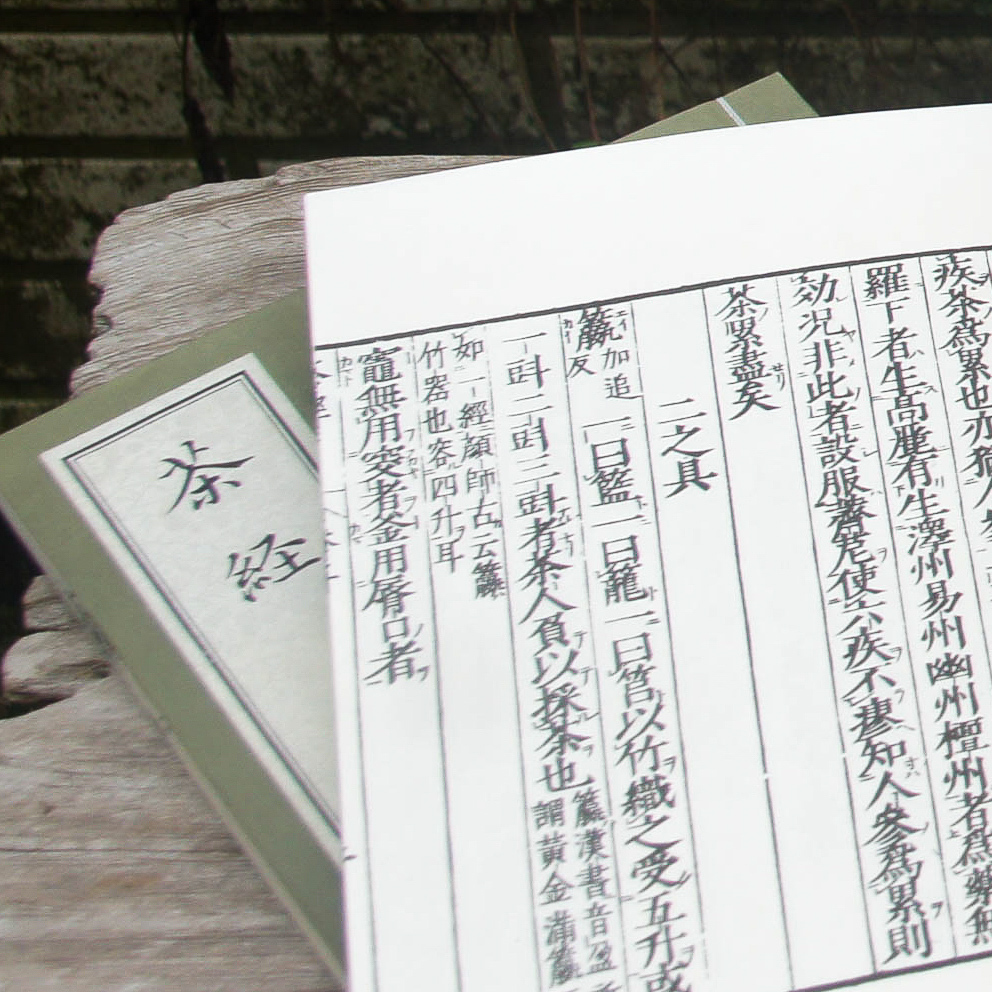 疾茶爲累也亦猶人參
羅下者生髙麗有生澤州易州幽州檀州者爲藥無
効况非此者設服薺苨使六疾不瘳知人參爲累則
茶累盡矣
二之具
籯加追反一曰籃一曰籠一曰筥以竹織之受五升或
一㪷二㪷三㪷者茶人負以採茶也籯漢書音盈
謂黃金滿籯
如一經顔師古云籯
竹器也容四升耳
竈無用突者釜用脣口者
茶
経